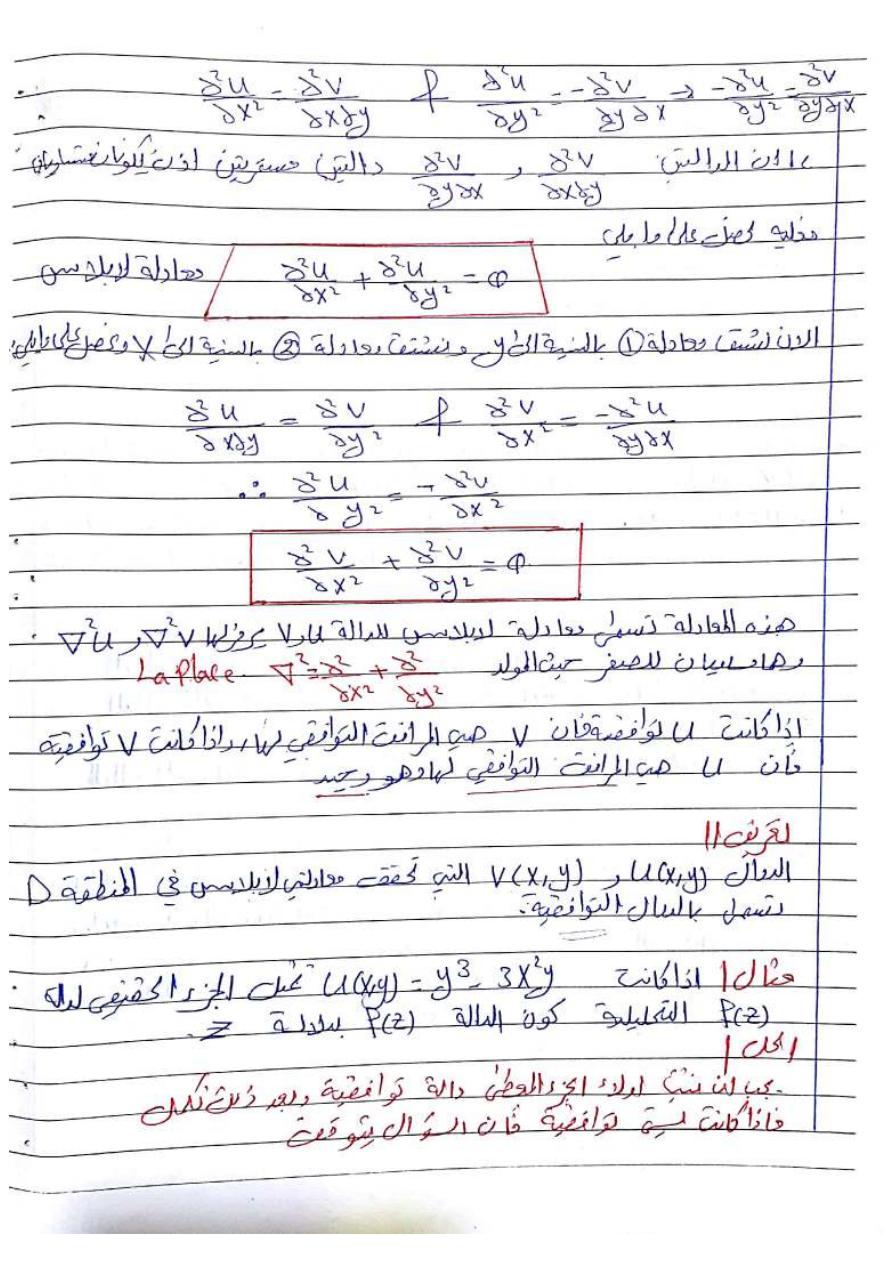 ∂²u/∂x² = ∂²v/∂x∂y & ∂²u/∂y² = -∂²v/∂y∂x → -∂²u/∂y² = ∂²v/∂y∂x
بما ان الدالتين ∂²v/∂x∂y و ∂²v/∂y∂x دالتين مستمرتين اذن يكونان متساويان
وعليه نحصل على ما يلي
∂²u/∂x² + ∂²u/∂y² = 0 معادلة لابلاس
الان نشتق معادلة ① بالنسبة الى y ونشتق معادلة ② بالنسبة الى x ونحصل على مايلي:
∂²u/∂x∂y = ∂²v/∂y² & ∂²v/∂x² = -∂²u/∂y∂x
∴ ∂²u/∂y² = -∂²v/∂x²
∂²v/∂x² + ∂²v/∂y² = 0
هذه المعادلة تسمى معادلة لابلاس للدالة u و v يرمز لها ∇²v و ∇²u
وهما مساويان للصفر حيث المولد ∇² = ∂²/∂x² + ∂²/∂y² La Place
اذا كانت u توافقية فان v هي المرافق التوافقي لها، واذا كانت v توافقية
فأن u هي المرافق التوافقي لها وهو وحيد
تعريف //
الدوال u(x,y) و v(x,y) التي تحقق معادلتي لابلاس في المنطقة D
تسمى بالدوال التوافقية.
مثال / اذا كانت u(x,y) = y³ - 3x²y تمثل الجزء الحقيقي لدالة
f(z) التحليلية كون الدالة f(z) بدلالة z.
الحل /
يجب ان نثبت اولاً الجزء المعطى دالة توافقية وبعد ذلك نكمل
فاذا كانت ليست توافقية فأن السؤال يتوقف